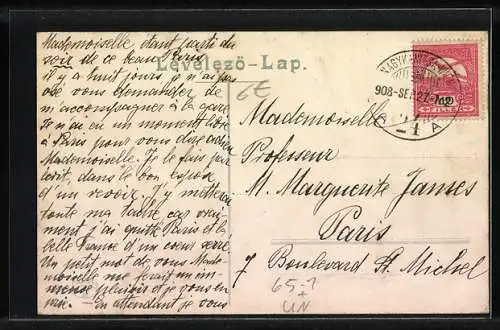 Mademoiselle, étant parti du
soir de ce beau Paris
il y a huit jours je n'ai pas
osé vous demander de
m'accompagner à la gare
Je n'ai eu un moment libre
à Paris pour vous dire adieu
Mademoiselle. Je le fais par
écrit, dans le bon espoir
d'un revoir. J'y mettrai
toute ma
, car vrai-
ment j'ai quitté Paris et la
belle France d'un cœur serré
Un petit mot de vous Made-
moiselle me ferait un im-
mense plaisir et je vous en
prie. – En attendant je vous
Levelező-Lap.
6€
908-SEP 27
A
Mademoiselle
Professeur
M. Marguerite James
Paris
7 Boulevard St. Michel
65-?
+
UN